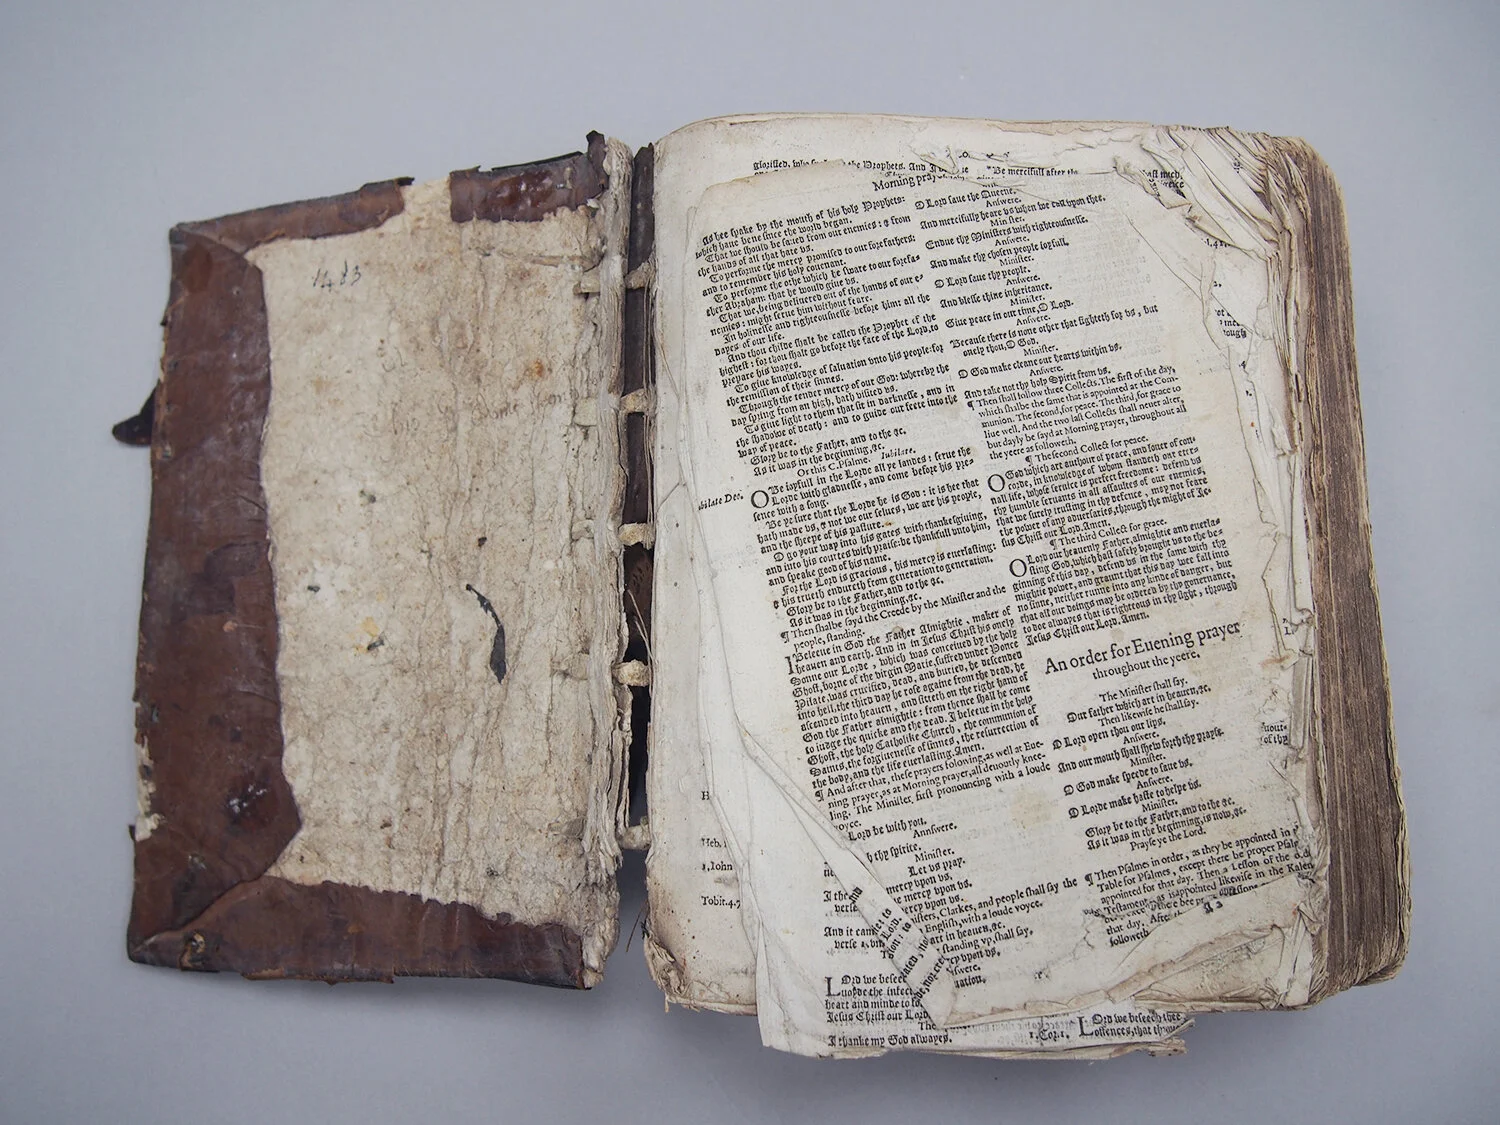 1483
glorified, who the Prophets. And I
"Be mercifull after the
hast much,
Morning pray
As hee spake by the mouth of his holy Prophets:
which haue bene since the world began.
That we should be saued from our enemies: & from
the hands of all that hate vs.
To performe the mercy promised to our forefathers:
and to remember his holy couenant.
To performe the othe which he sware to our forefa-
ther Abraham: that he would giue vs.
That we, being deliuered out of the hands of our e-
nemies: might serue him without feare.
In holinesse and righteousnesse before him: all the
dayes of our life.
And thou childe shalt be called the Prophet of the
highest: for thou shalt go before the face of the Lord, to
prepare his wayes.
To giue knowledge of saluation vnto his people: for
the remission of their sinnes.
Through the tender mercy of our God: whereby the
day spring from an high, hath visited vs.
To giue light to them that sit in darknesse, and in
the shadowe of death: and to guide our feete into the
way of peace.
Glory be to the Father, and to the &c.
As it was in the beginning, &c.
Or this C. Psalme. Iubilate.
bilate Deo.
O Be ioyfull in the Lorde all ye landes: serue the
Lorde with gladnesse, and come before his pre-
sence with a song.
Be ye sure that the Lorde he is God: it is hee that
hath made vs, & not we our selues, we are his people,
and the sheepe of his pasture.
O go your way into his gates with thankesgiuing,
and into his courtes with praise: be thankfull vnto him,
and speake good of his name.
For the Lord is gracious, his mercy is euerlasting:
& his trueth endureth from generation to generation.
Glory be to the Father, and to the &c.
As it was in the beginning, &c.
¶ Then shalbe sayd the Creede by the Minister and the
people, standing.
I Beleeue in God the Father Almightie, maker of
heauen and earth. And in in Jesus Christ his onely
Sonne our Lorde, which was conceiued by the holy
Ghost, borne of the virgin Marie, suffred vnder Ponce
Pilate, was crucified, dead, and buried, he descended
into hell, the third day he rose againe from the dead, he
ascended into heauen, and sitteth on the right hand of
God the Father almightie: from thence shall he come
to iudge the quicke and the dead. I beleeue in the holy
Ghost, the holy Catholike Church, the communion of
Saints, the forgiuenesse of sinnes, the resurrection of
the body, and the life euerlasting. Amen.
¶ And after that, these prayers folowing, as well at Eue-
ning prayer, as at Morning prayer, all deuoutly knee-
ling. The Minister, first pronouncing with a loude
voyce.
Lord be with you.
Annswere.
h thy spirite.
Minister.
Let vs pray.
mercy vpon vs.
mercy vpon vs.
ercy vpon vs.
isters, Clarkes, and people shall say the
English, with a loude voyce.
art in heauen, &c.
standing vp, shall say.
cy vpon vs.
swere.
uation.
O Lord saue the Queene.
Answere.
And mercifully heare vs when we call vpon thee.
Minister.
Endue thy Ministers with righteousnesse.
Answere.
And make thy chosen people ioyfull.
Minister.
O Lord saue thy people.
Answere.
And blesse thine inheritance.
Minister.
Giue peace in our time, O Lord.
Answere.
Because there is none other that fighteth for vs, but
onely thou, O God.
Minister.
O God make cleane our hearts within vs.
Answere.
And take not thy holy Spirit from vs.
¶ Then shall follow three Collects. The first of the day,
which shalbe the same that is appointed at the Com-
munion. The second, for peace. The third, for grace to
liue well. And the two last Collects shall neuer alter,
but dayly be sayd at Morning prayer, throughout all
the yeere as followeth.
¶ The second Collect for peace.
O God which art authour of peace, and louer of con-
corde, in knowledge of whom standeth our eter-
nall life, whose seruice is perfect freedome: defend vs
thy humble seruants in all assaultes of our enemies,
that we surely trusting in thy defence, may not feare
the power of any aduersaries, through the might of Je-
sus Christ our Lord. Amen.
¶ The third Collect for grace.
O Lord our heauenly Father, almightie and euerla-
sting God, which hast safely brought vs to the be-
ginning of this day, defend vs in the same with thy
mightie power, and graunt that this day wee fall into
no sinne, neither runne into any kinde of danger, but
that all our doings may be ordered by thy gouernance,
to doe alwayes that is righteous in thy sight, through
Jesus Christ our Lord. Amen.
An order for Euening prayer
throughout the yeere.
The Minister shall say.
Our father which art in heauen, &c.
Then likewise he shall say.
O Lord open thou our lips.
Answere.
And our mouth shall shew forth thy prayse.
Minister.
O God make speede to saue vs.
Answere.
O Lorde make haste to helpe vs.
Minister.
Glory be to the Father, and to the &c.
As it was in the beginning, is now, &c.
Prayse ye the Lord.
¶ Then Psalmes in order, as they be appointed in
Table for Psalmes, except there be proper Psal
appointed for that day. Then a Lesson of the old
Testament, as is appointed likewise in the Kalen
that day. After
followeth
A 2
Heb.
1. Iohn
Tobit. 4.7
I the
verse
And it
verse 1.
Lord we besee
heart and minde to
Jesus Christ our Lord,
The
I thanke my God alwayes.
1. Cor. 1.
Lord we beseech thee
offences, that